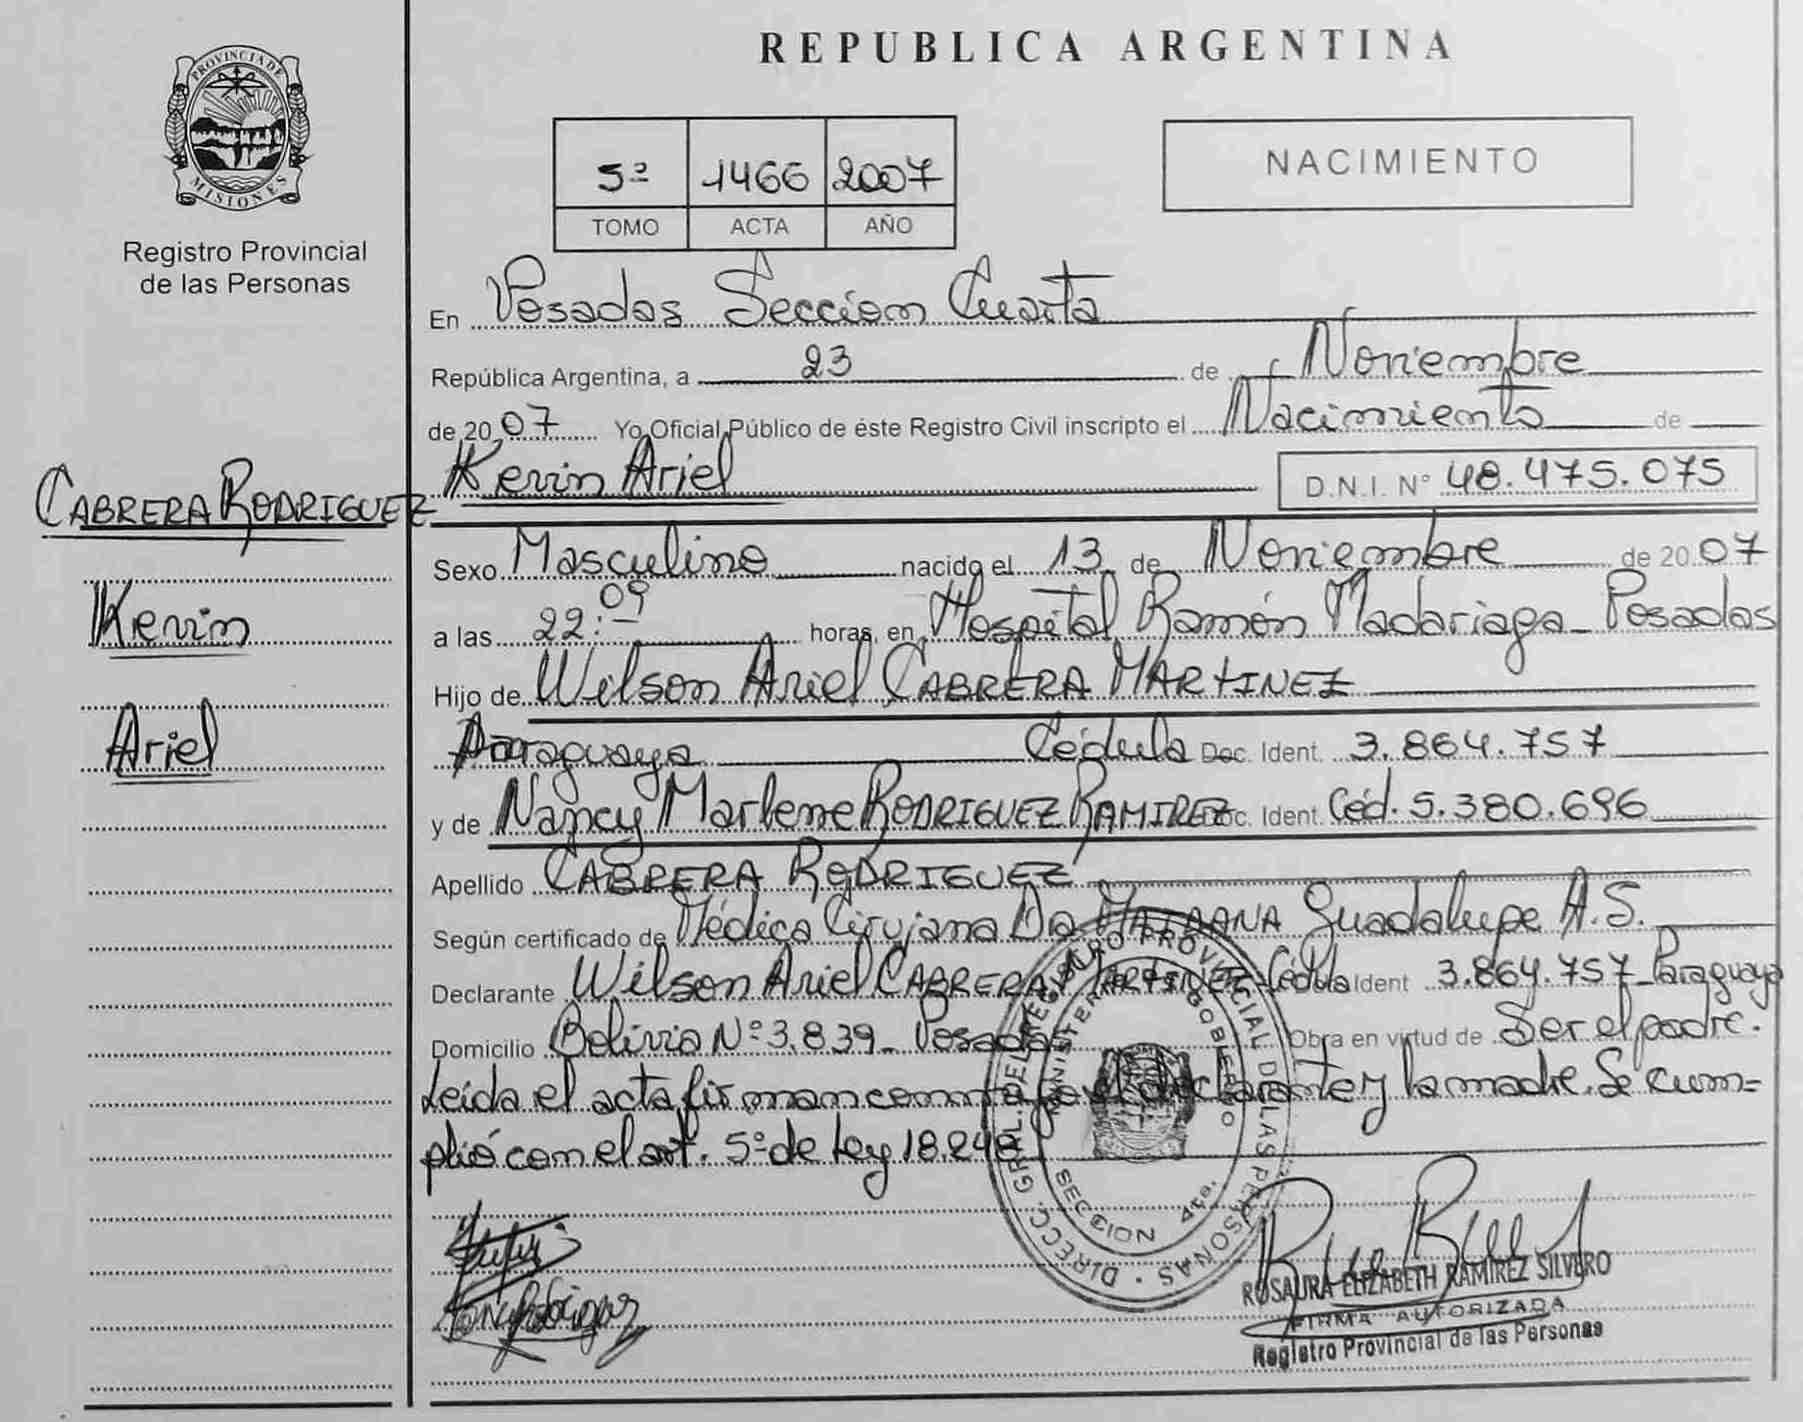 REPUBLICA ARGENTINA
PROVINCIA DE
MISIONES
Registro Provincial
de las Personas
5º 1466 2007
TOMO ACTA AÑO
NACIMIENTO
En Posadas Sección Cuarta
República Argentina, a 23 de Noviembre
de 2007 Yo Oficial Público de éste Registro Civil inscripto el Nacimiento de
Kevin Ariel D.N.I. Nº 48.475.075
CABRERA RODRIGUEZ
Kevin
Ariel
Sexo Masculino nacido el 13 de Noviembre de 2007
a las 22:09 horas, en Hospital Ramón Madariaga - Posadas
Hijo de Wilson Ariel CABRERA MARTINEZ
Paraguaya Cédula Doc. Ident. 3.864.757
y de Nancy Marlene RODRIGUEZ RAMIREZ Doc. Ident. Céd. 5.380.696
Apellido CABRERA RODRIGUEZ
Según certificado de Médica Cirujana Dra Guadalupe A.S.
Declarante Wilson Ariel CABRERA MARTINEZ Cédula Ident 3.864.757 - Paraguaya
Domicilio Bolivia Nº 3.839 - Posadas Obra en virtud de Ser el padre.
Leida el acta firman conmigo el declarante y la madre. Se cum=
plió con el art. 5º de Ley 18.248
DIRECC. GRAL. DEL REGISTRO PROVINCIAL DE LAS PERSONAS
MINISTERIO GOBIERNO
SECCION 4ta.
ROSAURA ELIZABETH RAMIREZ SILVERO
FIRMA AUTORIZADA
Registro Provincial de las Personas